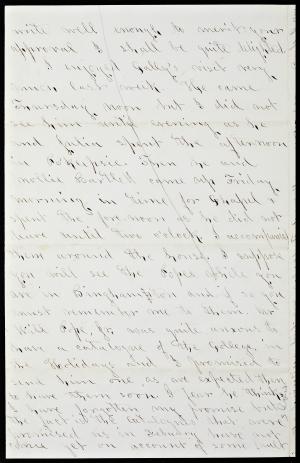 write well enough to merit your
approval I shall be quite delighted.
I enjoyed visit very
much last week. He came
Thursday noon but I did not
see him until evening as he
and spent the afternoon
in Then he and
Mollie Bartlett came up Friday
morning in time for Chapel &
spent the forenoon as he did not
leave until two o'clock I accompanied
them around the house. I suppose
you will see the Popes while you
are in Binghamton and if so you
must remember me to them.
Will Pope was quite anxious to
have a catalogue of the College, in
the Holidays and I promised to
send him one, as we expected then
to have them soon I fear he thinks
I have forgotten my promise but
the fact is the Catalogues that were
promised us in January have not
come yet on account of some